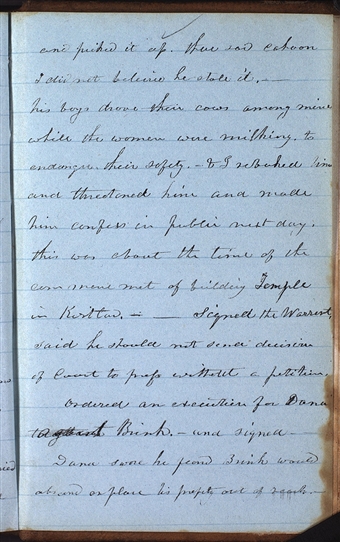 and picked it up. there said cahoon
I did not believe he stole it. —
his boys drove their cows among mine
while the women were milking. to
endanger their safety. — & I rebuked him
and threatened him and made
him confess in public next day.
this was about the time of the
commencemet of building Temple
in Kirtlan. — — Signed the Warrent,
said he should not send decission
of Court to pass without a petition.
ordered an execution for Dana
Brink. — and signed —
Dana swore he feard Brink would
abscond or place his property out of reach. —